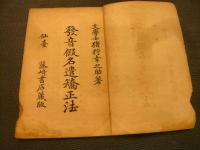 文學士猪狩幸之助著
發音假名遣矯正法
仙臺 藤崎書店藏版